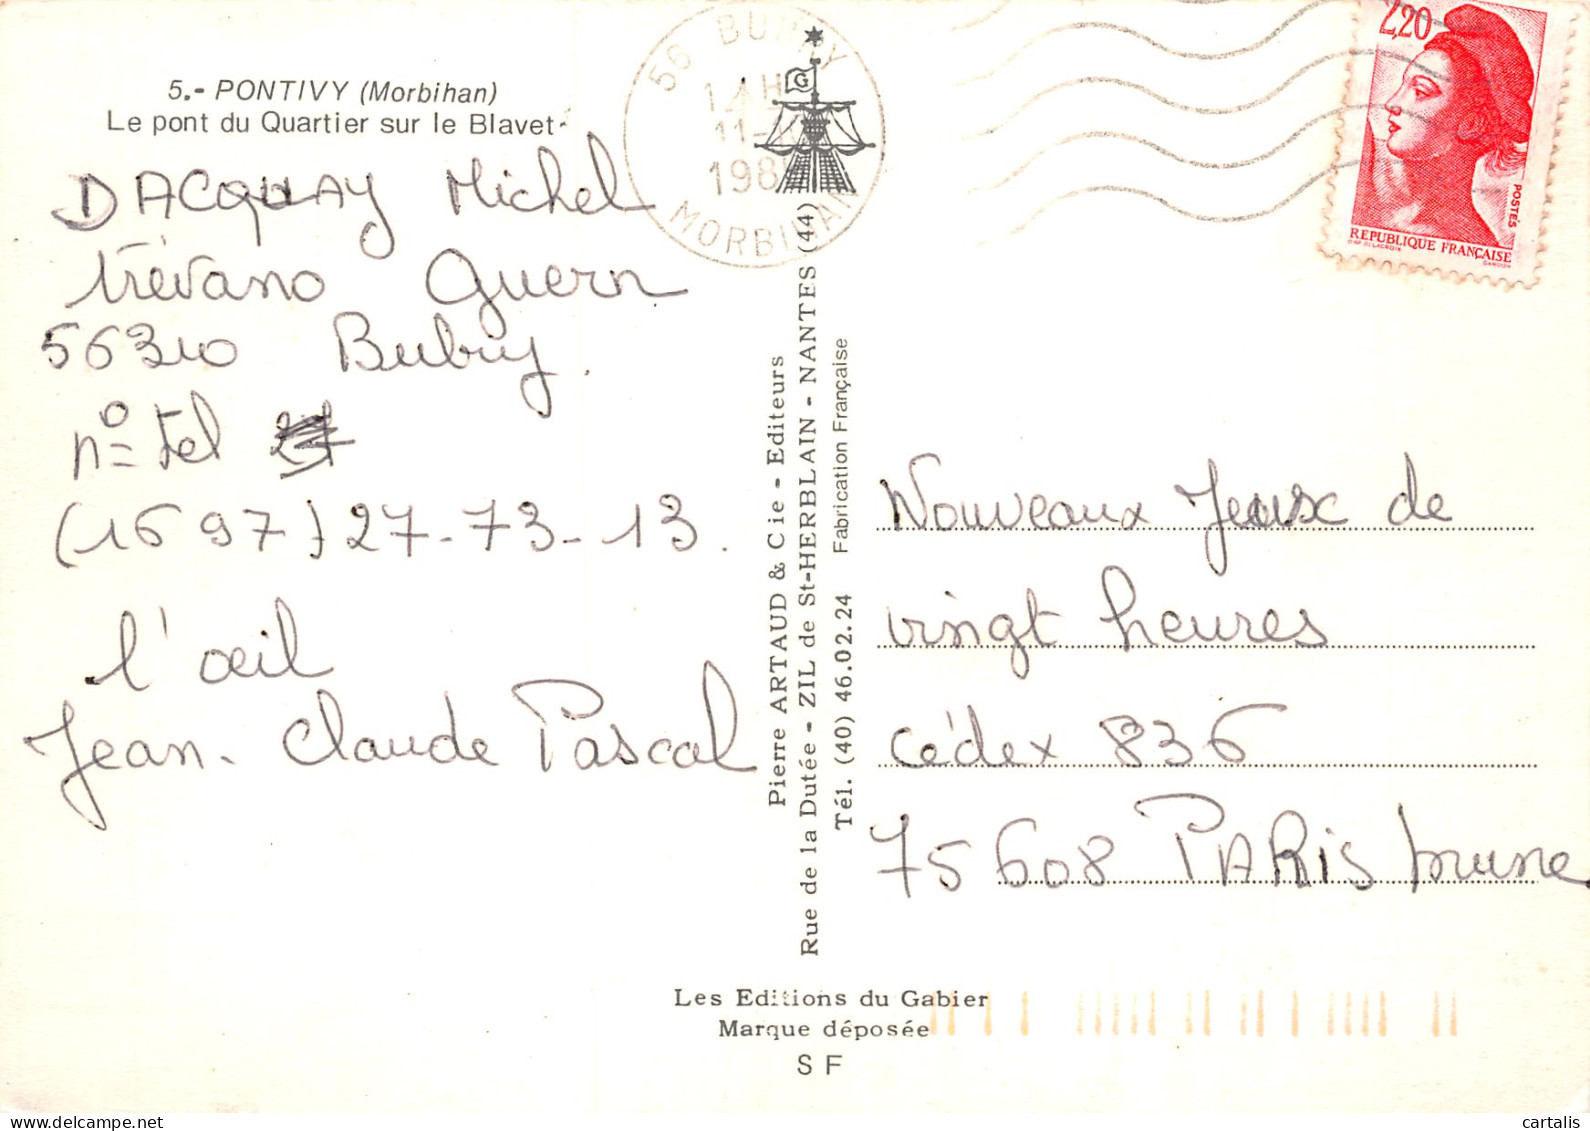 5.- PONTIVY (Morbihan)
Le pont du Quartier sur le Blavet
DACQUAY Michel
trévano Guern
56310 Bubry.
n° tel
(16 97) 27-73-13.
l'œil
Jean-Claude Pascal
56 BUBRY
11
198
MORBIHAN
G
2,20
POSTES
REPUBLIQUE FRANÇAISE
D'AP. DELACROIX
GANDON
Pierre ARTAUD & Cie - Editeurs
Rue de la Dutée - ZIL de St-HERBLAIN - NANTES (44)
Tél. (40) 46.02.24 Fabrication Française
Nouveaux Jeux de
vingt heures
cédex 836
75608 PARIS brune
Les Editions du Gabier
Marque déposée
S F
cartalis